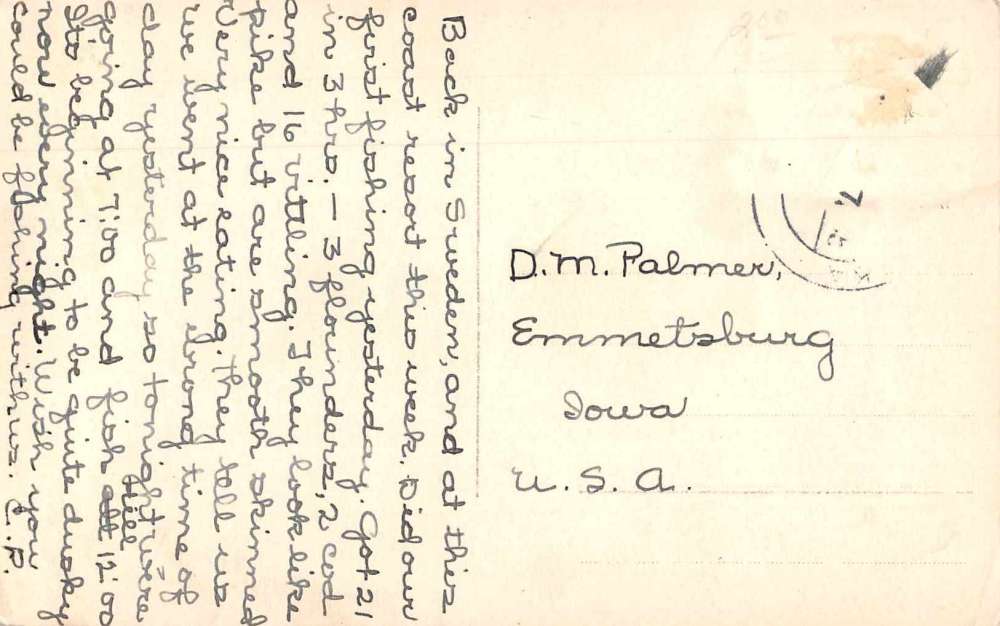 Back in Sweden, and at this
coast resort this week. Did our
first fishing yesterday. Got 21
in 3 hrs. — 3 flounders, 2 cod
and 16 vittling. They look like
pike but are smooth skinned
Very nice eating. They tell us
we went at the wrong time of
day yesterday so tonight we're
going at 7:00 and fish till 12:00
Its beginning to be quite dusky
now every night. Wish you
could be fishing with us. C.P.
D.M. Palmer,
Emmetsburg
Iowa
U.S.A.